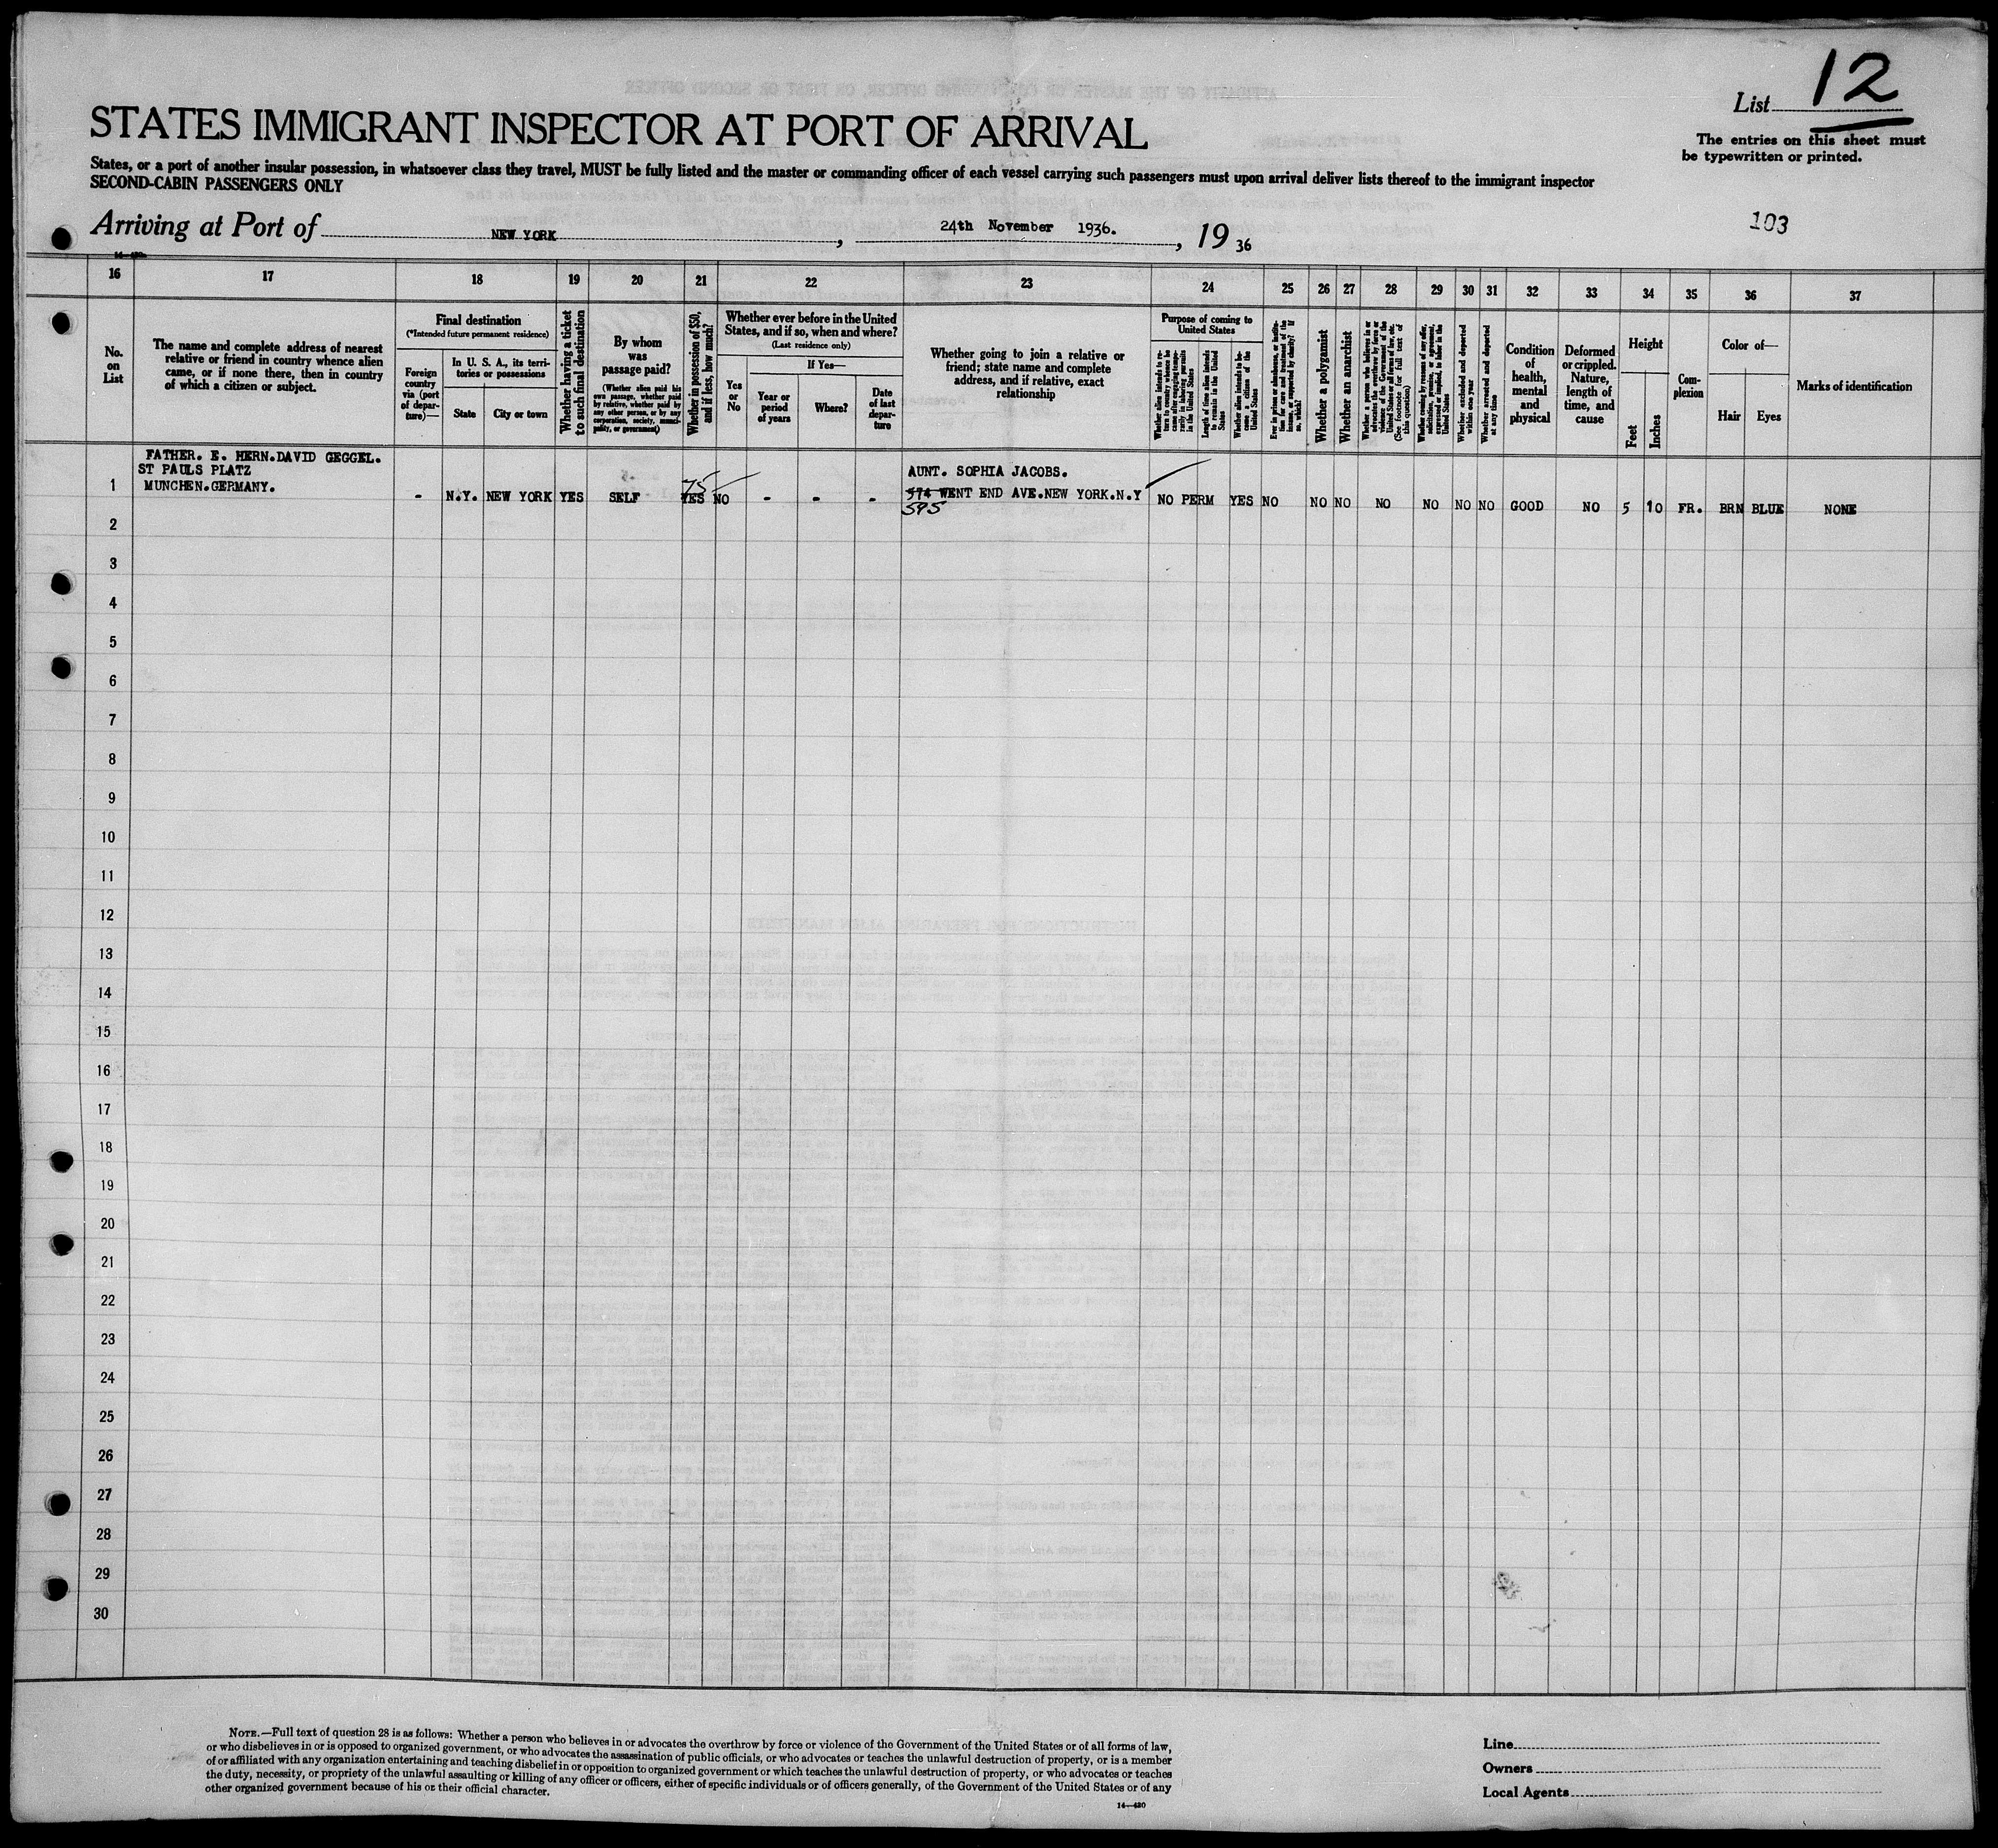 12
List
The entries on this sheet must
be typewritten or printed.
STATES IMMIGRANT INSPECTOR AT PORT OF ARRIVAL
States, or a port of another insular possession, in whatsoever class they travel, MUST be fully listed and the master or commanding officer of each vessel carrying such passengers must upon arrival deliver lists thereof to the immigrant inspector
SECOND-CABIN PASSENGERS ONLY
Arriving at Port of NEW YORK, 24th November 1936., 1936
103
16 17 18 19 20 21 22 23 24 25 26 27 28 29 30 31 32 33 34 35 36 37
No.
on
List
The name and complete address of nearest
relative or friend in country whence alien
came, or if none there, then in country
of which a citizen or subject.
Final destination
(*Intended future permanent residence)
Foreign
country
via (port
of depar-
ture)—
In U. S. A., its terri-
tories or possessions
State
City or town
Whether having a ticket
to such final destination
By whom
was
passage paid?
(Whether alien paid his
own passage, whether paid
by relative, whether paid by
any other person, or by any
corporation, society, munici-
pality, or government)
Whether in possession of $50,
and if less, how much?
Whether ever before in the United
States, and if so, when and where?
(Last residence only)
Yes
or
No
If Yes—
Year or
period
of years
Where?
Date
of last
depar-
ture
Whether going to join a relative or
friend; state name and complete
address, and if relative, exact
relationship
Purpose of coming to
United States
Whether alien intends to re-
turn to country whence he
came after engaging tempo-
rarily in laboring pursuits
in the United States
Length of time alien intends
to remain in the United
States
Whether alien intends to be-
come a citizen of the
United States
Ever in prison or almshouse, or institu-
tion for care and treatment of the
insane, or supported by charity? If
so, which?
Whether a polygamist
Whether an anarchist
Whether a person who believes in or
advocates the overthrow by force or
violence of the Government of the
United States or all forms of law, etc.
(See footnote for full text of
this question)
Whether coming by reasons of any offer,
solicitation, promise, or agreement,
expressed or implied, to labor in the
United States
Whether excluded and deported
within one year
Whether arrested and deported
at any time
Condition
of
health,
mental
and
physical
Deformed
or crippled.
Nature,
length of
time, and
cause
Height
Feet
Inches
Com-
plexion
Color of—
Hair
Eyes
Marks of identification
FATHER. E. HERN.DAVID GEGGEL.
ST PAULS PLATZ
MUNCHEN.GERMANY.
1 - N.Y. NEW YORK YES SELF 75 YES NO - - -
AUNT. SOPHIA JACOBS.
574 WENT END AVE.NEW YORK.N.Y
595
NO PERM YES NO NO NO NO NO NO NO GOOD NO 5 10 FR. BRN BLUE NONE
2
3
4
5
6
7
8
9
10
11
12
13
14
15
16
17
18
19
20
21
22
23
24
25
26
27
28
29
30
NOTE.—Full text of question 28 is as follows: Whether a person who believes in or advocates the overthrow by force or violence of the Government of the United States or of all forms of law,
or who disbelieves in or is opposed to organized government, or who advocates the assassination of public officials, or who advocates or teaches the unlawful destruction of property, or is a member
of or affiliated with any organization entertaining and teaching disbelief in or opposition to organized government or which teaches the unlawful destruction of property, or who advocates or teaches
the duty, necessity, or propriety of the unlawful assaulting or killing of any officer or officers, either of specific individuals or of officers generally, of the Government of the United States or of any
other organized government because of his or their official character.
14—430
Line
Owners
Local Agents